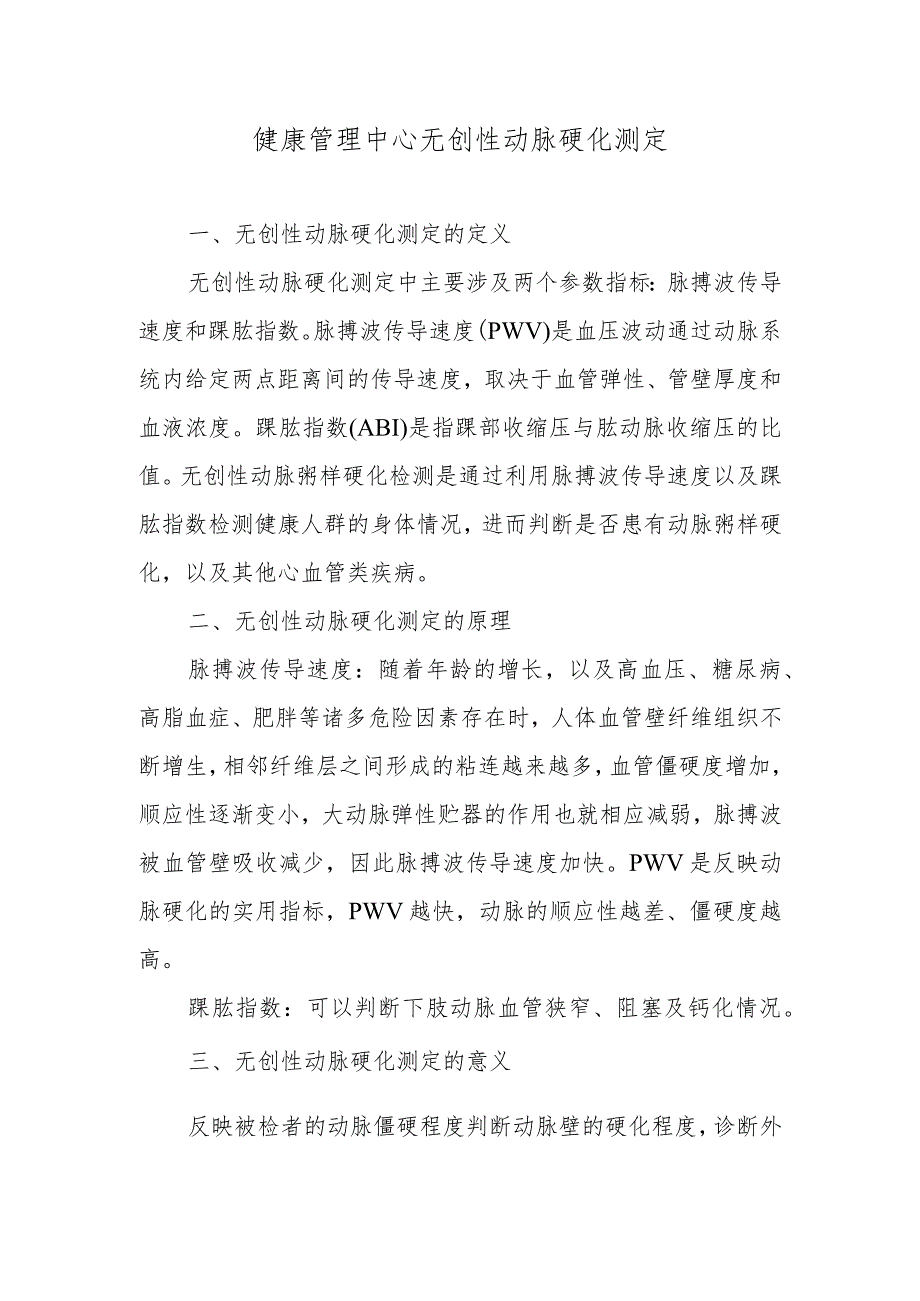 健康管理中心无创性动脉硬化测定
一、无创性动脉硬化测定的定义
无创性动脉硬化测定中主要涉及两个参数指标：脉搏波传导
速度和踝肱指数。脉搏波传导速度(PWV)是血压波动通过动脉系
统内给定两点距离间的传导速度，取决于血管弹性、管壁厚度和
血液浓度。踝肱指数(ABI)是指踝部收缩压与肱动脉收缩压的比
值。无创性动脉粥样硬化检测是通过利用脉搏波传导速度以及踝
肱指数检测健康人群的身体情况，进而判断是否患有动脉粥样硬
化，以及其他心血管类疾病。
二、无创性动脉硬化测定的原理
脉搏波传导速度：随着年龄的增长，以及高血压、糖尿病、
高脂血症、肥胖等诸多危险因素存在时，人体血管壁纤维组织不
断增生，相邻纤维层之间形成的粘连越来越多，血管僵硬度增加，
顺应性逐渐变小，大动脉弹性贮器的作用也就相应减弱，脉搏波
被血管壁吸收减少，因此脉搏波传导速度加快。PWV是反映动
脉硬化的实用指标，PWV越快，动脉的顺应性越差、僵硬度越
高。
踝肱指数：可以判断下肢动脉血管狭窄、阻塞及钙化情况。
三、无创性动脉硬化测定的意义
反映被检者的动脉僵硬程度判断动脉壁的硬化程度，诊断外